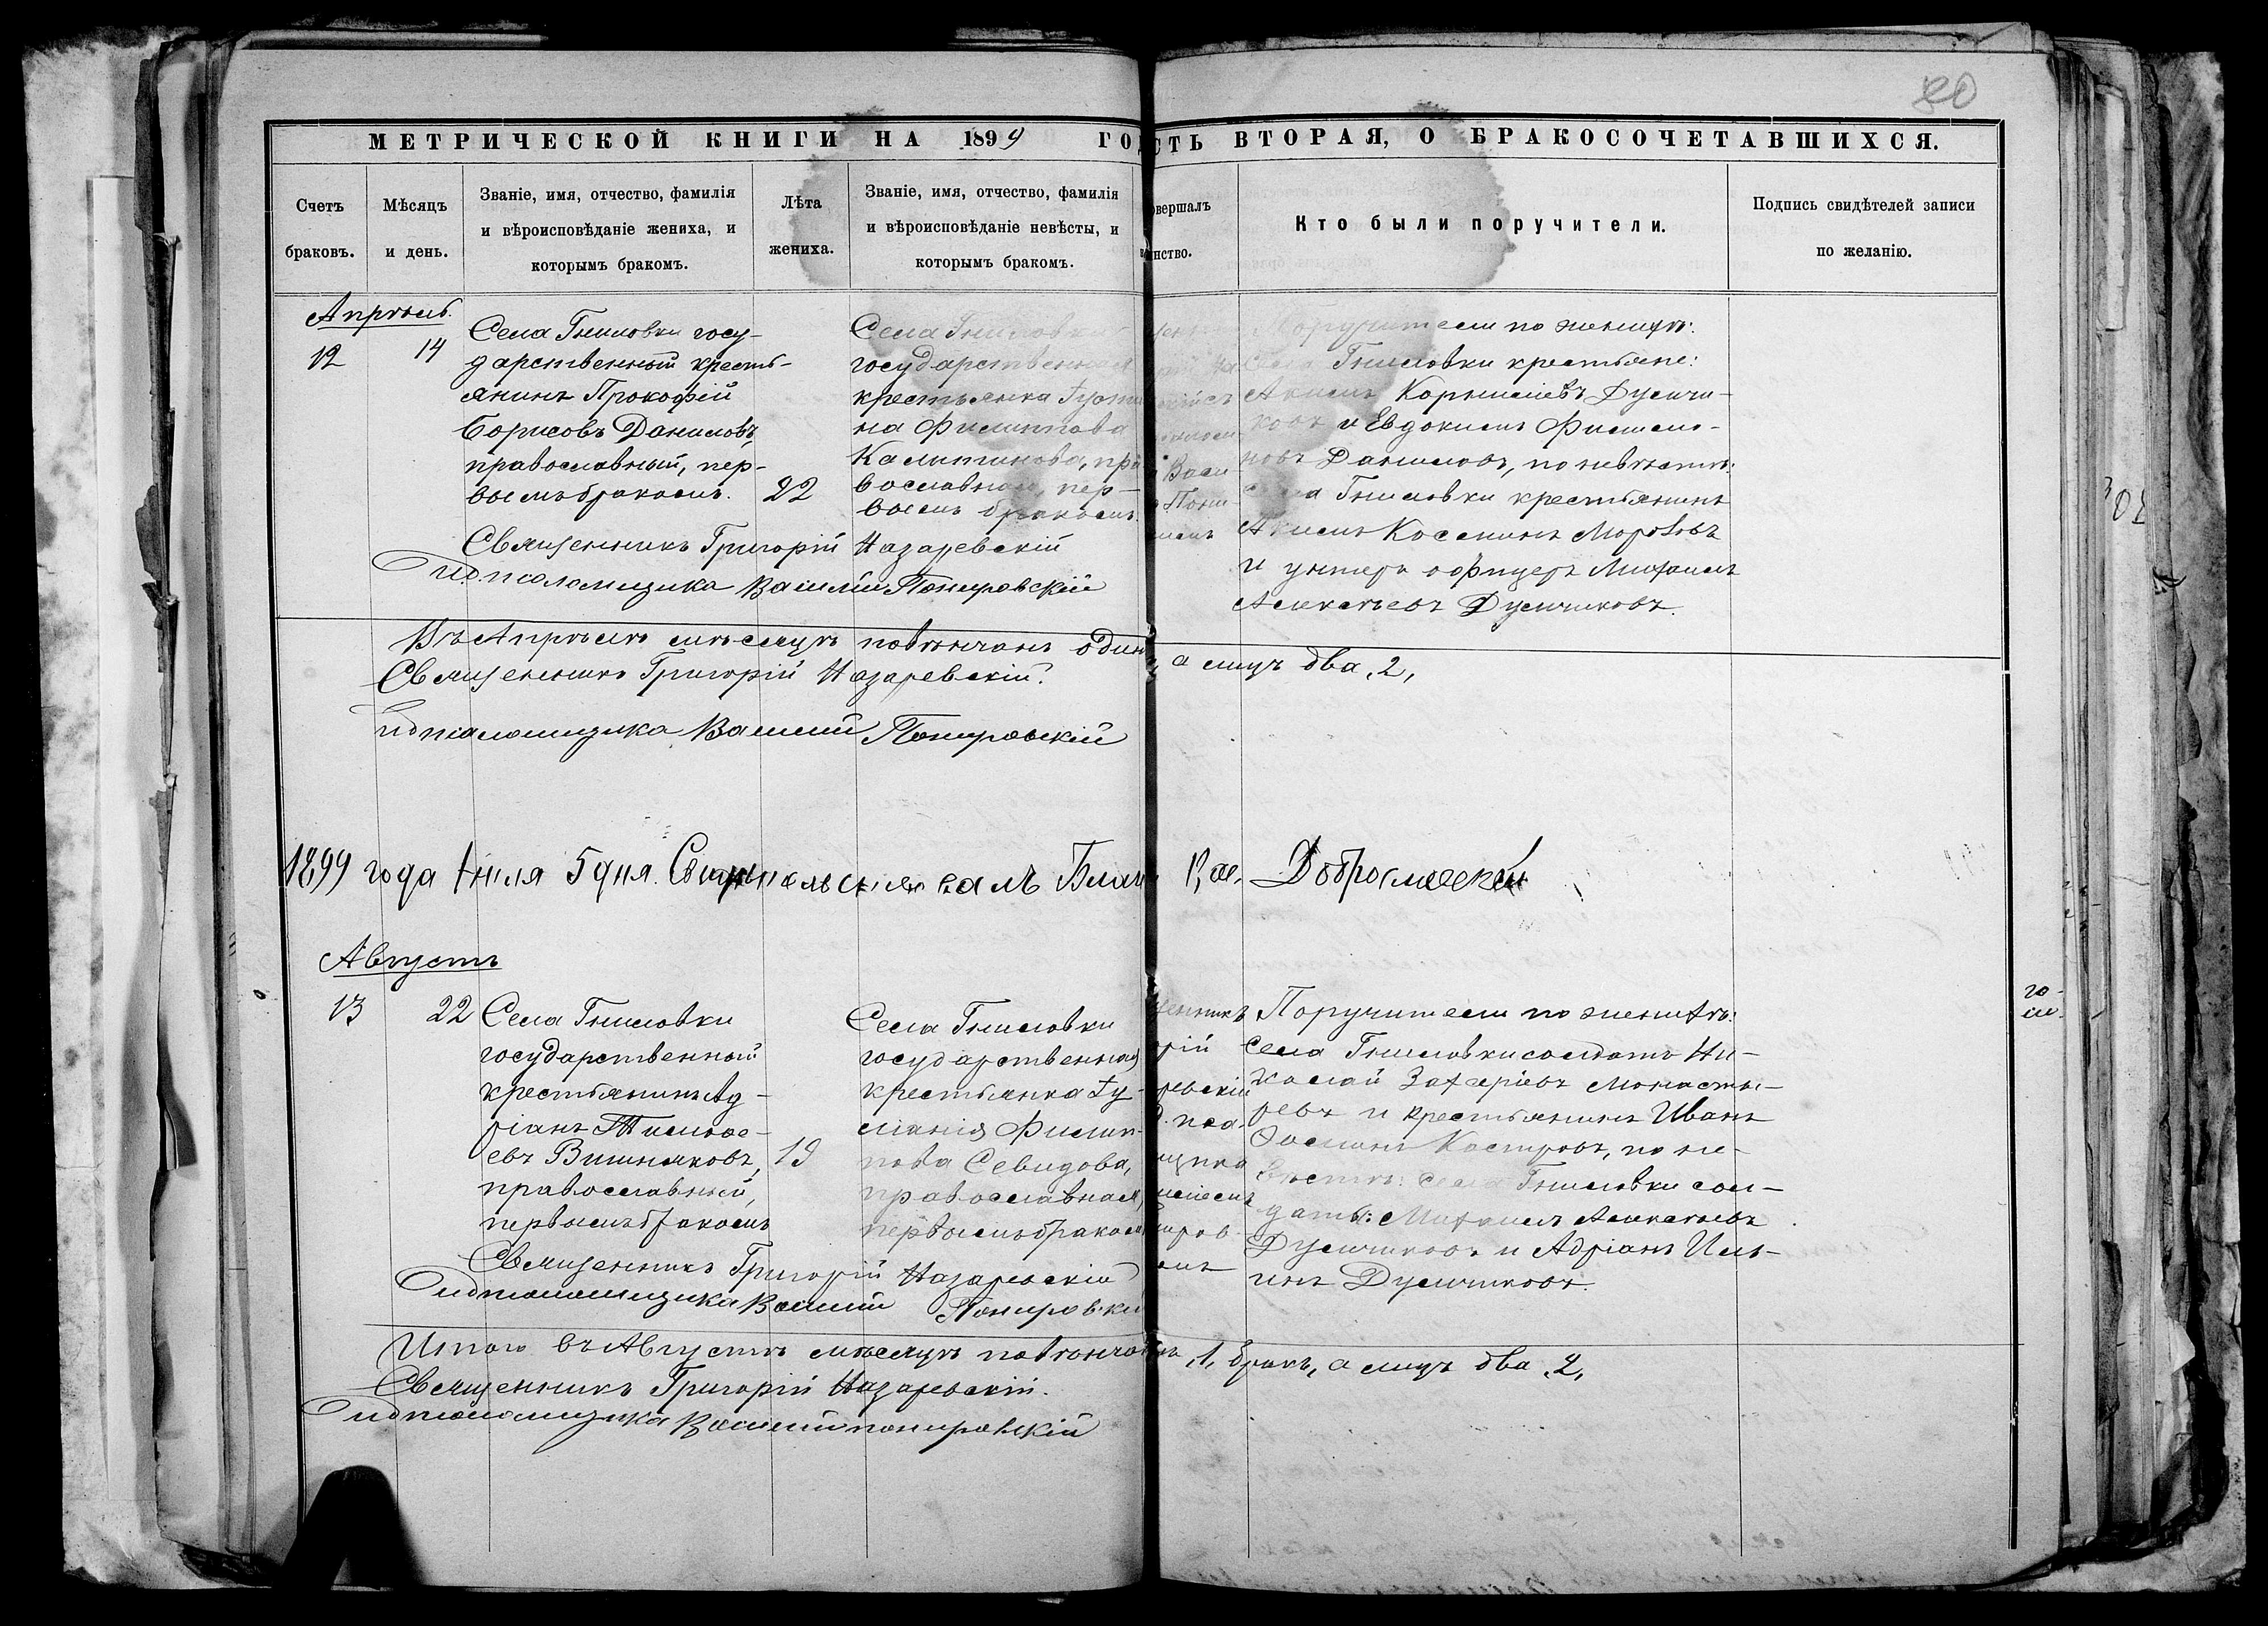 80
МЕТРИЧЕСКОЙ КНИГИ НА 1899 ГО
СТЬ ВТОРАЯ, О БРАКОСОЧЕТАВШИХСЯ.
Счетъ браковъ.
Мѣсяцъ и день.
Званіе, имя, отчество, фамилія
и вѣроисповѣданіе жениха, и
которымъ бракомъ.
Лѣта жениха.
Званіе, имя, отчество, фамилія
и вѣроисповѣданіе невѣсты, и
которымъ бракомъ.
овершалъ
инство.
Кто были поручители.
Подпись свидѣтелей записи
по желанію.
Апрѣль.
12
14
Села Гниловки госу-
дарственный кресть-
янинъ Прокофій
Борисовъ Даниловъ,
православный, пер-
вымъ бракомъ.
22
Села Гниловки
государственная
крестьянка Іусти
на Филиппова
Калитинова, пра
вославная, пер-
вымъ бракомъ.
Поручители по женихѣ:
Села Гниловки крестьяне:
Акимъ Корниліевъ Думчи-
ковъ и Евдокимъ Филимо-
новъ Даниловъ, по невѣстѣ:
Села Гниловки крестьянинъ
Акимъ Косминъ Морозовъ
и унтеръ офицеръ Михаилъ
Алексѣевъ Думчиковъ.
Священникъ Григорій Назаревскій
И.д. псаломщика Василій Понировскій
Въ Апрѣлѣ мѣсяцѣ повѣнчанъ один
, а лицъ два „2„
Священникъ Григорій Назаревскій.
И.д. псаломщика Василій Понировскій
1899 года Іюля 5 дня. Свидѣтельствовалъ Благ
Добромысловъ
Августъ
13
22
Села Гниловки
государственный
крестьянинъ Ад-
ріанъ Тимоѳе-
евъ Вишняковъ,
православный,
первымъ бракомъ
19
Села Гниловки
государственная
крестьянка Іу-
ліанія Филип-
пова Севидова,
православная,
первымъ браком
енникъ
рій
ревскій
пса
щика
иліемъ
Поручители по женихѣ:
Села Гниловки солдатъ Ни-
колай Захаріевъ Монасты-
ревъ и крестьянинъ Иванъ
Ѳоминъ Костровъ, по не-
вѣстѣ: села Гниловки сол-
даты: Михаилъ Алексѣевъ
Думчиковъ и Адріанъ Иль-
инъ Думчиковъ.
Священникъ Григорій Назаревскій
И.д. псаломщика Василій Понировскі
Итого въ Августѣ мѣсяцѣ повѣнчанъ „1„ бракъ, а лицъ два „2„
Священникъ Григорій Назаревскій.
И.д. псаломщика Василій Понировскій